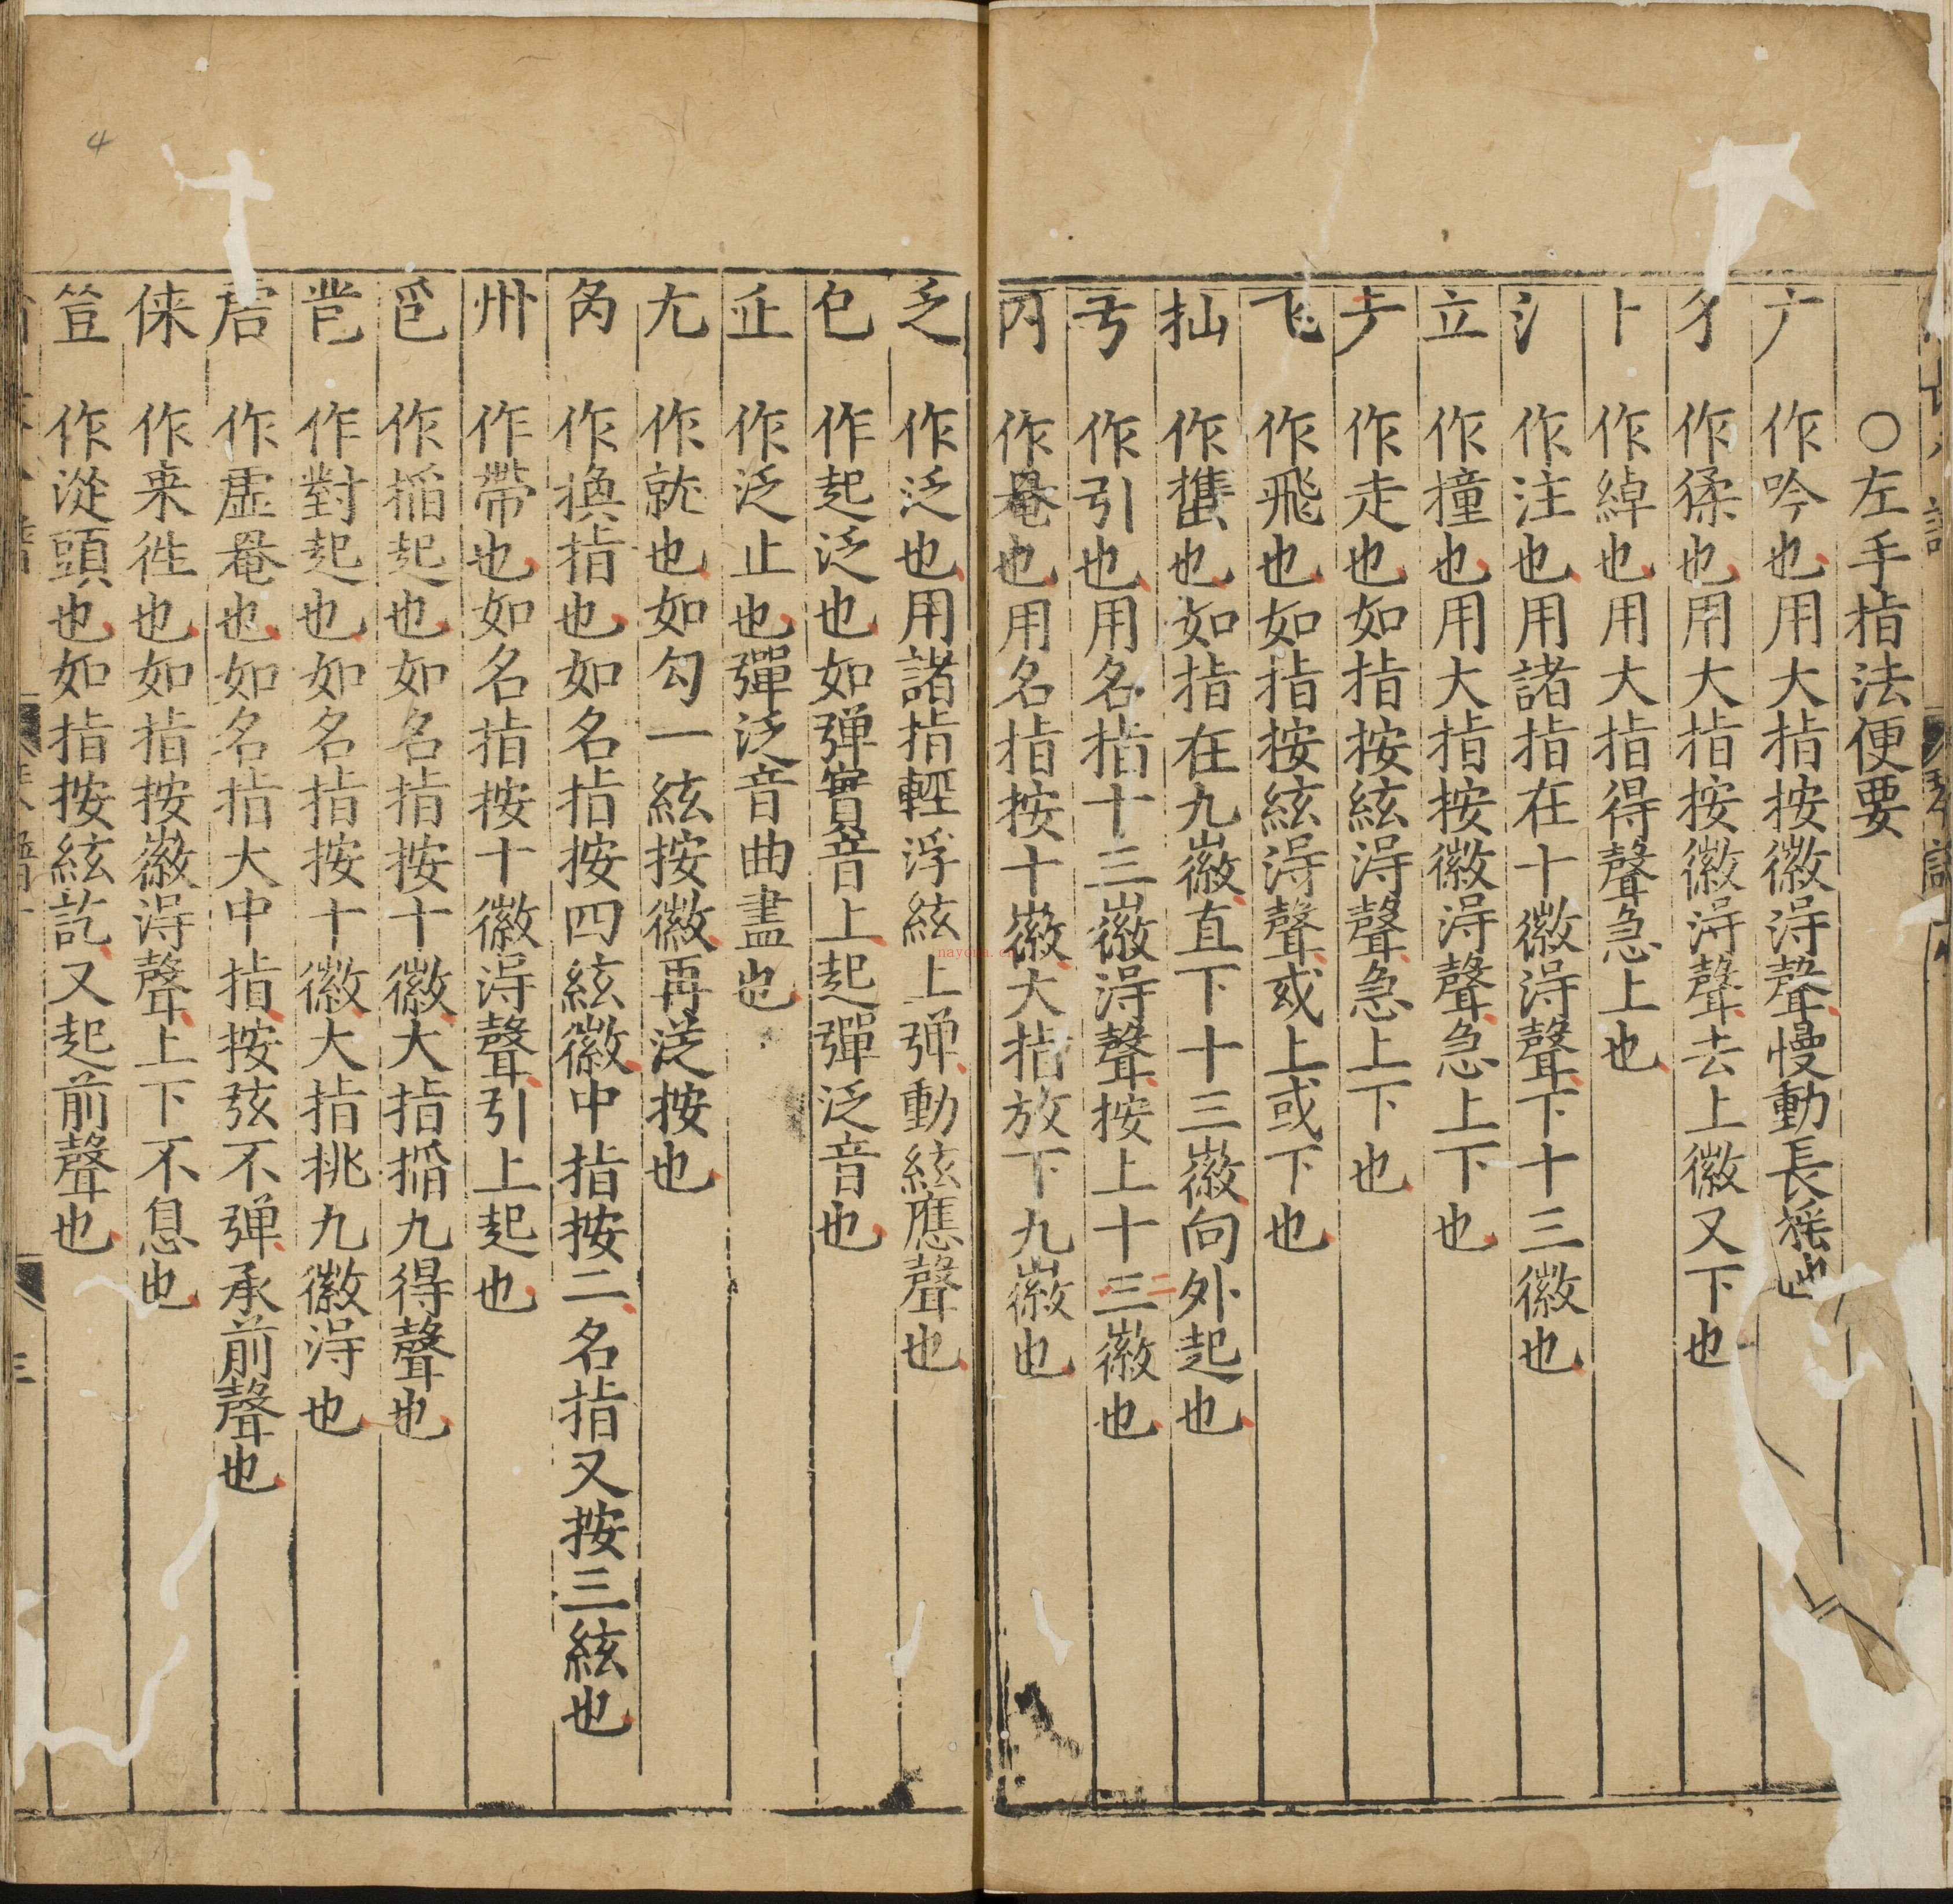 ○左手指法便要
亠 作吟也用大指按徽淂聲慢動長搖也
犭 作猱也用大指按徽淂聲去上徽又下也
卜 作綽也用大指得聲急上也
氵 作注也用諸指在十徽淂聲下十三徽也
立 作撞也用大指按徽淂聲急上下也
作走也如指按絃淂聲急上下也
飞 作飛也如指按絃淂聲或上或下也
作擕也如指在九徽直下十三徽向外起也
作引也用名指十三徽淂聲按上十三徽也
作罨也用名指按十徽大指放下九徽也
乏 作泛也用諸指輕浮絃上弹動絃應聲也
作起泛也如弹實音上起彈泛音也
作泛止也彈泛音曲盡也
尢 作就也如勾一絃按徽再泛按也
作換指也如名指按四絃徽中指按二名指又按三絃也
作帶也如名指按十徽淂聲引上起也
作搯起也如名指按十徽大指搯九得聲也
作對起也如名指按十徽大指挑九徽淂也
作虛罨也如名指大中指按弦不弹承前聲也
俫 作来徃也如指按徽淂聲上下不息也
作從頭也如指按絃訖又起前聲也
三
4